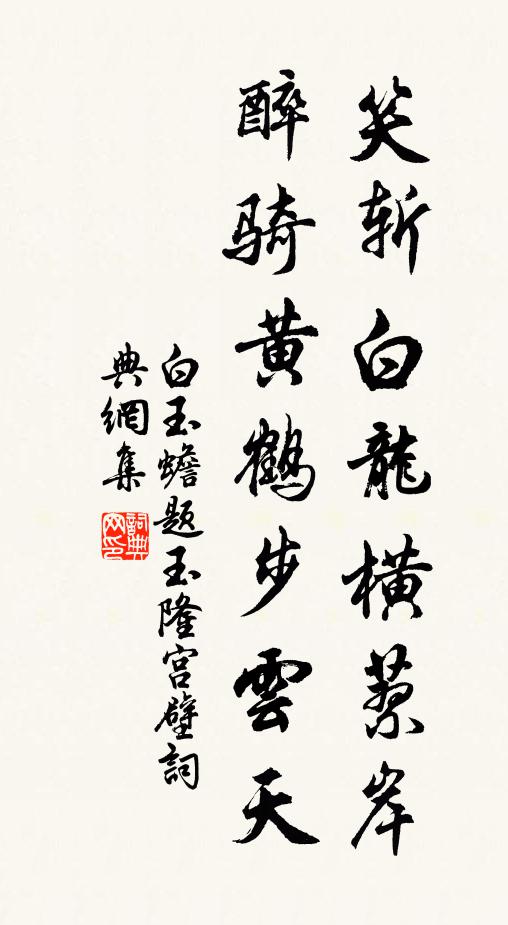 笑斬白龍橫蓼岸
醉騎黃鶴步雲天
白玉蟾題玉隆宮壁詞
典網集
詞典網印